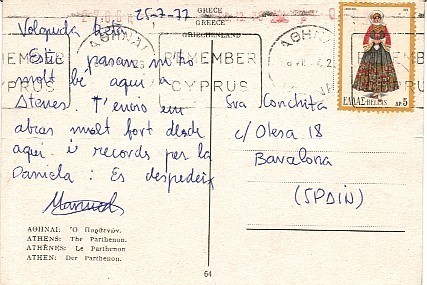 25-7-77
GRECE
GREECE
GRIECHENLAND
ΑΘΗΝΑΙ
REMEMBER
CYPRUS
REMEMBER
CYPRUS
ΑΘΗΝΑΙ
ΕΛΛΑΣ-HELLAS ΔΡ 5
Volguda tieta:
Estic passant m'ho
molt bé aquí a
Atenes. T'envio un
abras molt fort desde
aqui i records per la
Daniela: Es despedeix
Manuel
Sra Conchita
c/ Olesa 18
Barcelona
(SPAIN)
ΑΘΗΝΑΙ: Ὁ Παρθενών.
ATHENS: The Parthenon.
ATHÈNES: Le Parthenon
ATHEN: Der Parthenon.
64